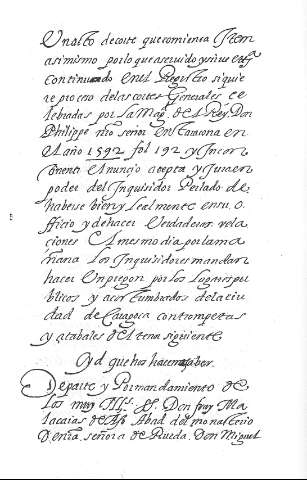 Un acto de corte que comiença Item
asimismo por lo que a seruido y sirue
continuando en el Registro siquie
re proceso de las cortes Generales ce
lebradas por la Mag. del Rey Don
Philippe nro señor en taraçona en
el año 1592 fol 192 y Incon
tinenti el nuncio acepta y Jura en
poder del Inquisidor Perlado de
haberse bien y lealmente en su o
fficio y de hacer Verdaderas rela
ciones El mesmo dia por la ma
ñana los Inquisidores mandan
hacer Un pregon por los lugares pu
blicos y acostumbrados de la ciu
dad de Çaragoça con trompetas
y atabales del tenor siguiente
Oyd que hos hacen a saber
De parte y Por mandamiento de
los muy Ills. S. Don fray Ma
Abad del monesterio
señora de Rueda. Don Miguel